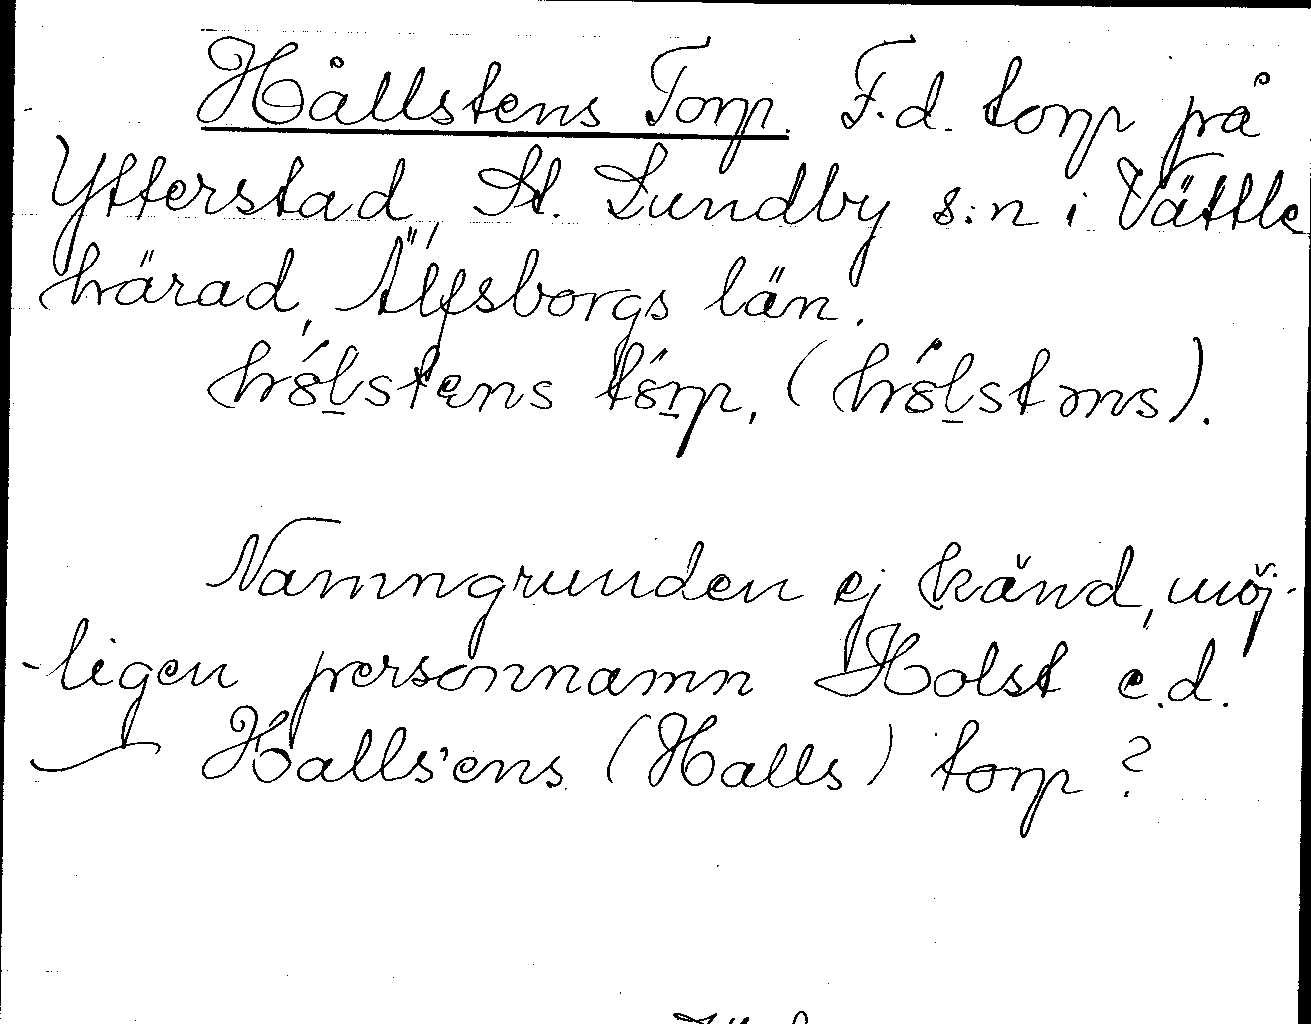 Hållstens Torp. F.d. torp på
Ytterstad, St. Lundby s:n i Vättle
härad, Älfsborgs län.
hó̱lstens tórp, (hólstəns).
Namngrunden ej känd, möj-
-ligen personnamn Holst e.d.
Halls'ens (Halls) torp?